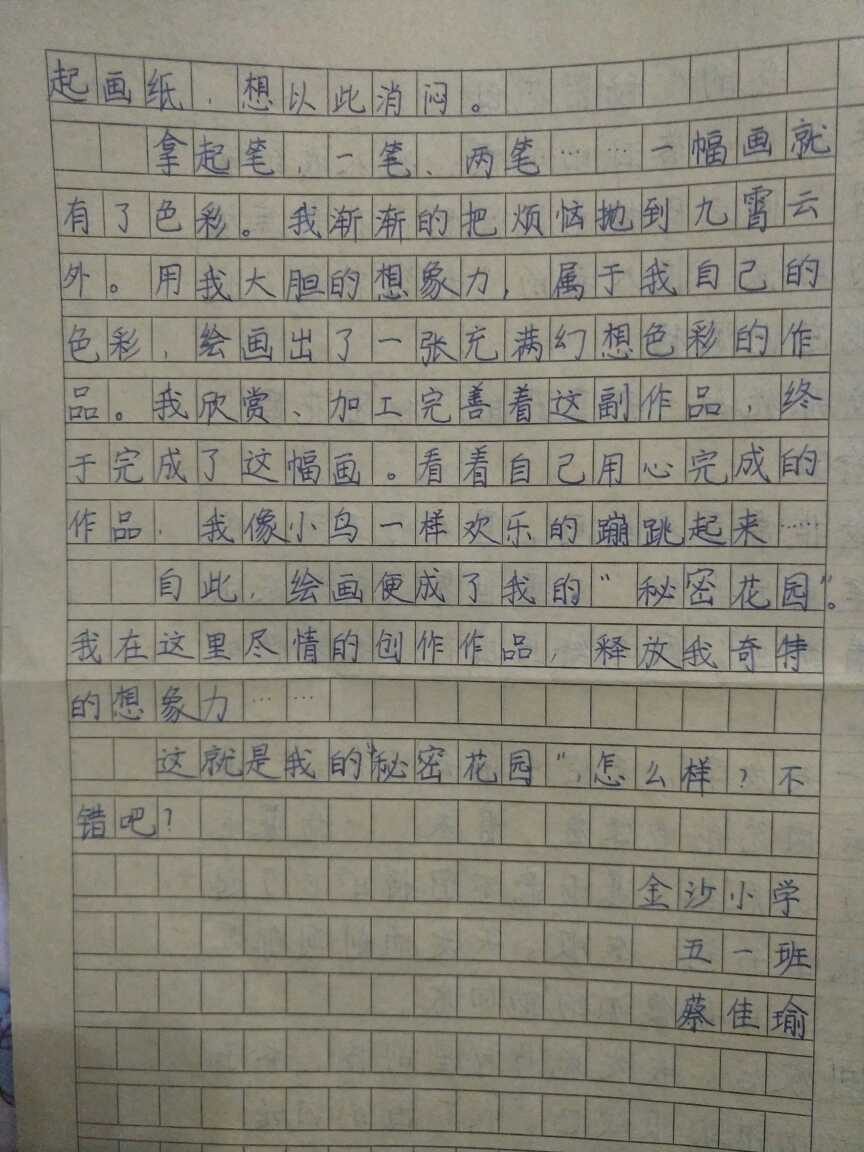 起画纸，想以此消闷。
拿起笔，一笔、两笔……一幅画就
有了色彩。我渐渐的把烦恼抛到九霄云
外。用我大胆的想象力，属于我自己的
色彩，绘画出了一张充满幻想色彩的作
品。我欣赏、加工完善着这副作品，终
于完成了这幅画。看着自己用心完成的
作品，我像小鸟一样欢乐的蹦跳起来……
自此，绘画便成了我的“秘密花园”。
我在这里尽情的创作作品，释放我奇特
的想象力……
这就是我的“秘密花园”，怎么样？不
错吧？
金沙小学
五一班
蔡佳瑜